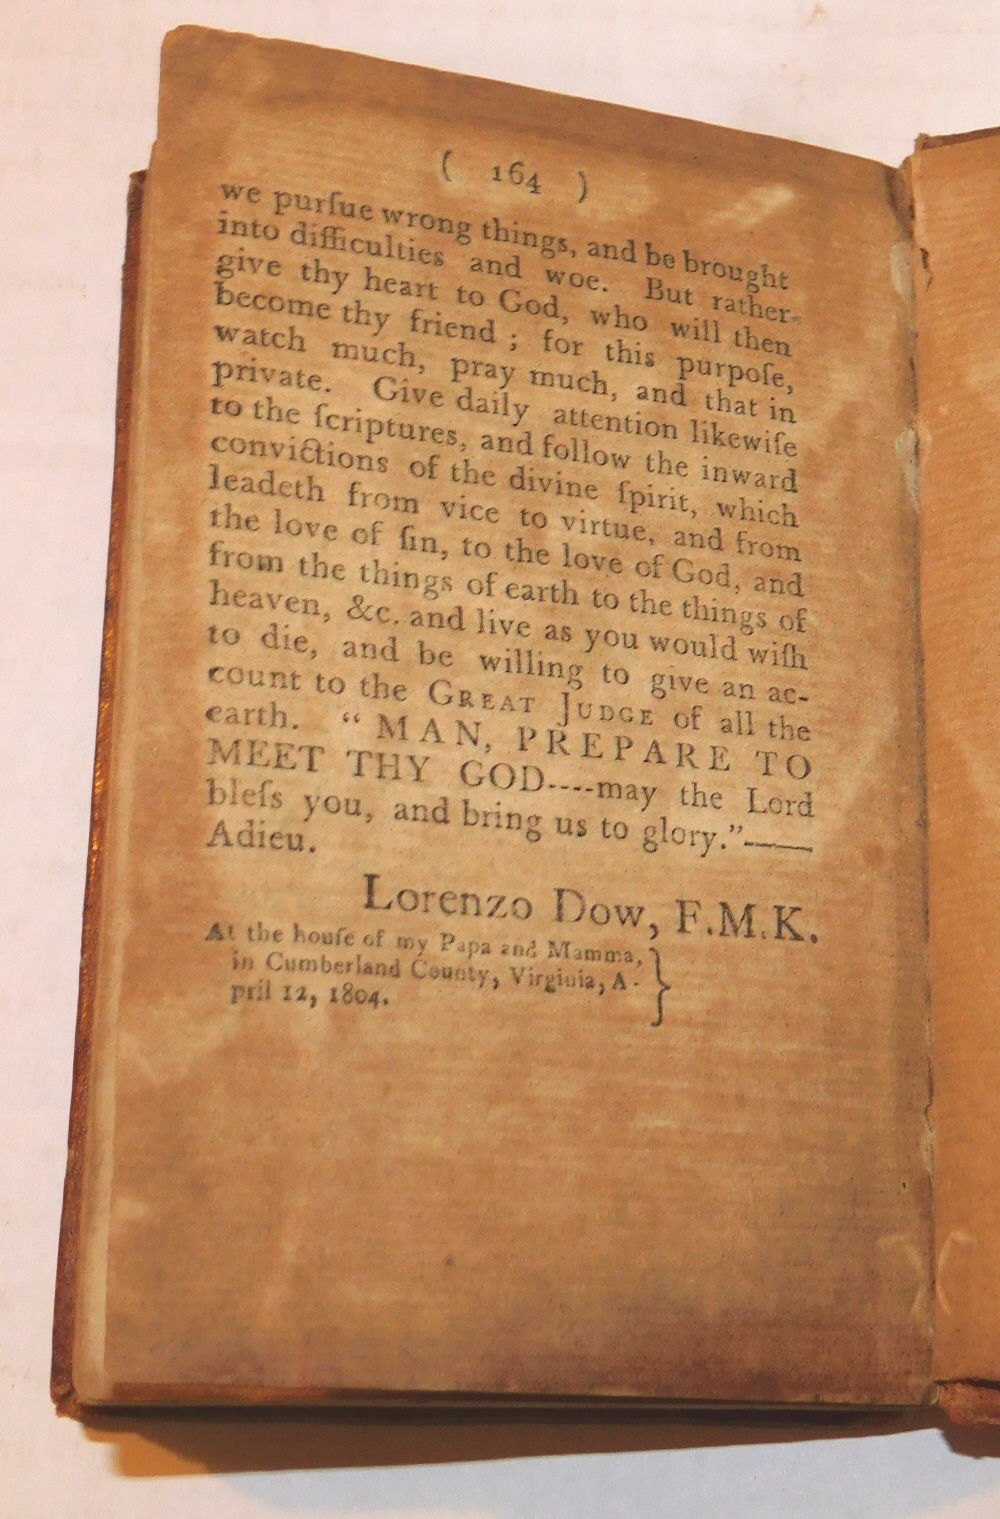 ( 164 )
we purſue wrong things, and be brought
into difficulties and woe. But rather
give thy heart to God, who will then
become thy friend ; for this purpoſe,
watch much, pray much, and that in
private. Give daily attention likewiſe
to the ſcriptures, and follow the inward
convictions of the divine ſpirit, which
leadeth from vice to virtue, and from
the love of ſin, to the love of God, and
from the things of earth to the things of
heaven, &c. and live as you would wiſh
to die, and be willing to give an ac-
count to the GREAT JUDGE of all the
earth. “ MAN, PREPARE TO
MEET THY GOD----may the Lord
bleſs you, and bring us to glory.”——
Adieu.
Lorenzo Dow, F.M.K.
At the houſe of my Papa and Mamma,
in Cumberland County, Virginia, A-
pril 12, 1804.